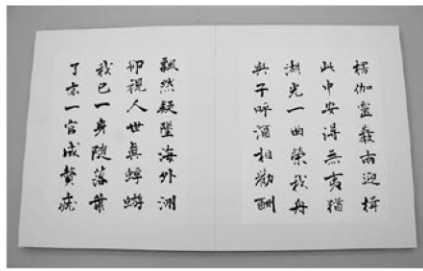 楞伽靈巖兩迎揖
此中安得無夷猶
湖光一曲縈我舟
與子呼酒相勸酬
飄然疑墮海外洲
視人世真蜉蝣
我已一身隨落葉
亦一官成贅疣